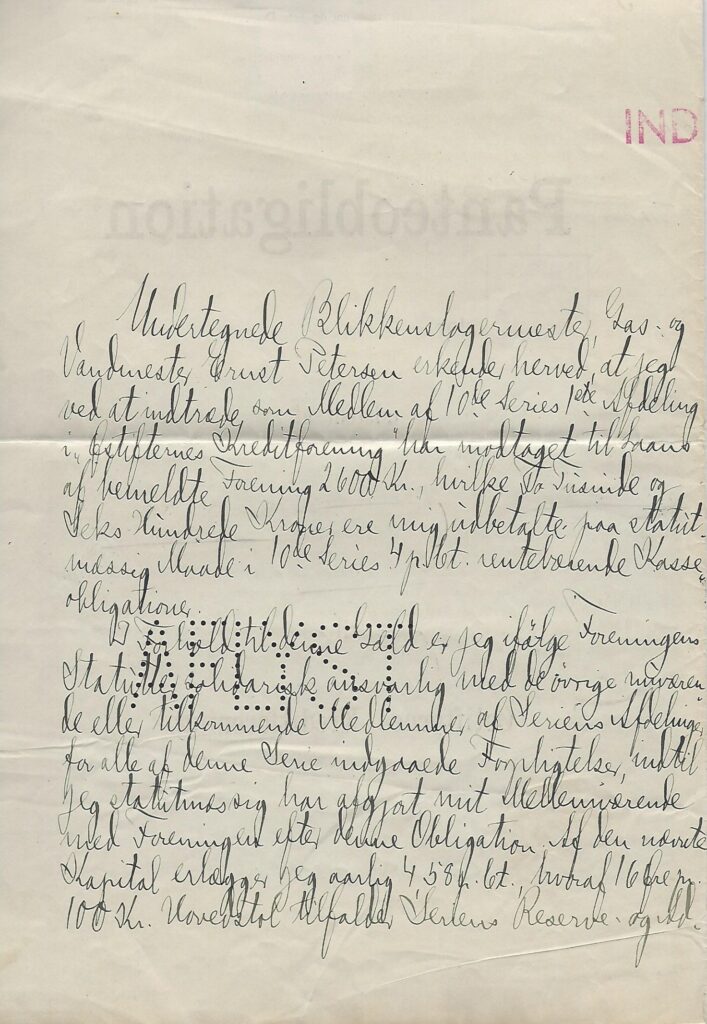 IND
Panteobligation
Undertegnede Blikkenslagermester, Gas- og
Vandmester Ernst Petersen erkender herved, at jeg
ved at indtræde som Medlem af 10de Series 1ste Afdeling
i „Østifternes Kreditforening" har modtaget til Laans
af bemeldte Forening 2600 Kr., hvilke To Tusinde og
Seks Hundrede Kroner, ere mig udbetalte paa statut-
mæssig Maade i 10de Series 4 p. Ct. rentebærende Kasse-
obligationer.
I Forhold til denne Gæld er jeg ifølge Foreningens
Statuter solidarisk ansvarlig med de øvrige nuværen-
de eller tilkommende Medlemmer af Seriens Afdelinger
for alle af denne Serie indgaaede Forpligtelser, indtil
jeg statutmæssig har afgjort mit Mellemværende
med Foreningen efter denne Obligation. Af den nævnte
Kapital erlægger jeg aarlig 4,58 p. Ct., hvoraf 16 Øre pr.
100 Kr. Hovedstol tilfalder Seriens Reserve- og Ad-